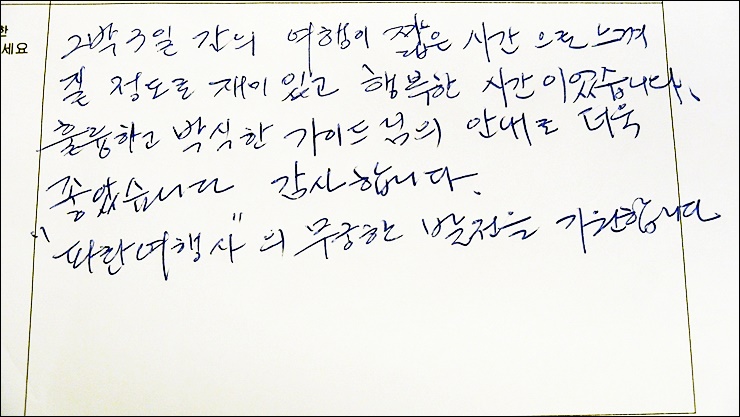 한
세요
2박 3일 간의 여행이 짧은 시간 으로 느껴
질 정도로 재미 있고 행복한 시간이었습니다.
훌륭하고 박식한 가이드 님의 안내로 더욱
좋았습니다 감사합니다.
"파란여행사"의 무궁한 발전을 기원합니다